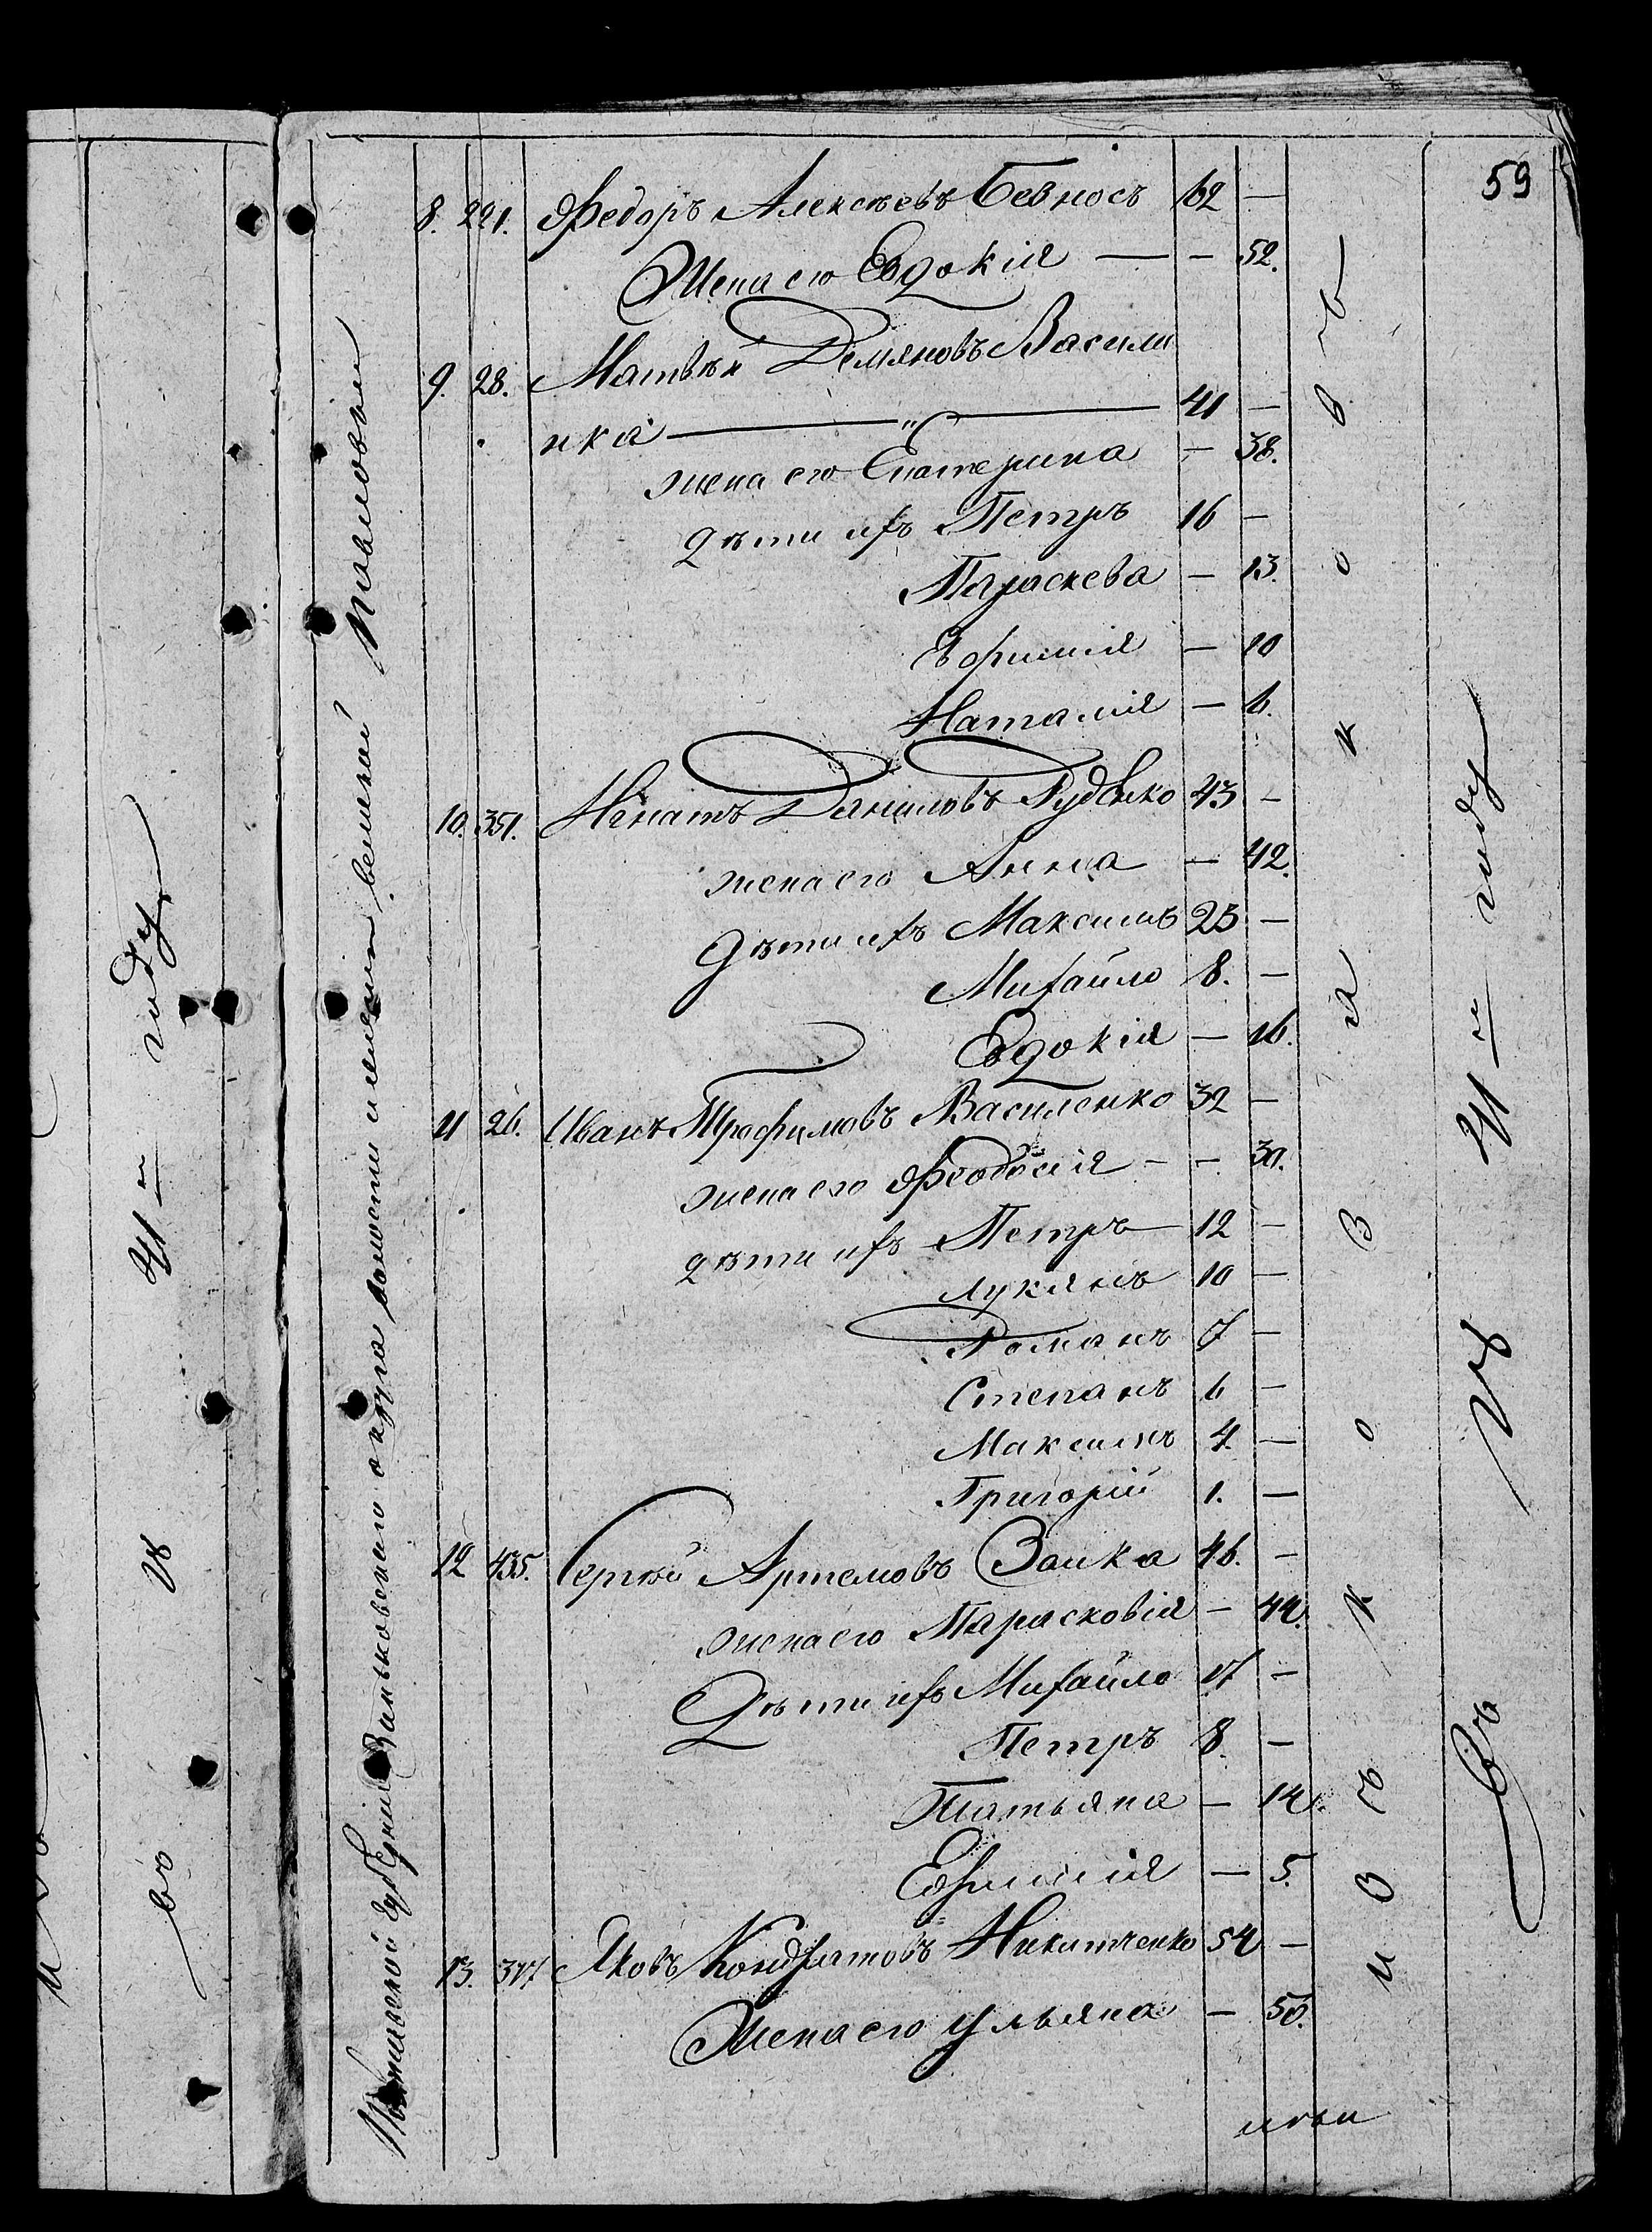 59
Полтавской губерніи Зиньковскаго округа волости и селенія великой Павловки
8. 221. Федоръ Алексѣевъ Бевносъ 62 —
Жена его Евдокія — — 52.
9. 28. Матвѣй Демяновъ Васили
нка — „ — 41 —
жена его Екатерина — 38.
дѣти ихъ Петръ 16 —
Параскева — 13.
Ефимія — 10
Наталія — 6.
10. 351. Игнатъ Даниловъ Руденко 43 —
жена его Анна — 42.
дѣти ихъ Максимъ 23 —
Михайло 8. —
Евдокія — 16.
11 26. Иванъ Трофимовъ Василенко 32 —
жена его Феодосія — — 30.
дѣти ихъ Петръ 12 —
Лукянъ 10 —
Романъ 7 —
Степанъ 6 —
Максимъ 4. —
Григорій 1. —
12 435. Сергѣй Артемовъ Заика 46. —
жена его Парасковія — 44.
Дѣти ихъ Михайло 17 —
Петръ 8. —
Татьяна — 14.
Ефимія — 5.
13. 317 Яковъ Кондратовъ Никитченко 54 —
Жена его Ульяна — 50.
изъ козаковъ
Въ 41 м году
въ 41 м году